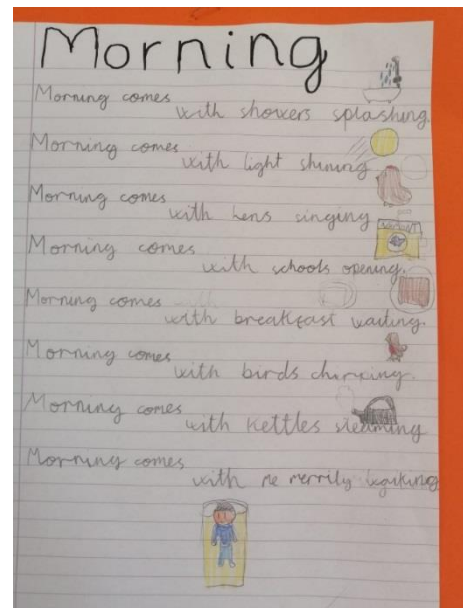 Morning
Morning comes
with showers splashing.
Morning comes
with light shining
Morning comes
with hens singing
Morning comes
with schools opening.
Morning comes
with breakfast waiting.
Morning comes
with birds chirping.
Morning comes
with kettles steaming
Morning comes
with me merrily